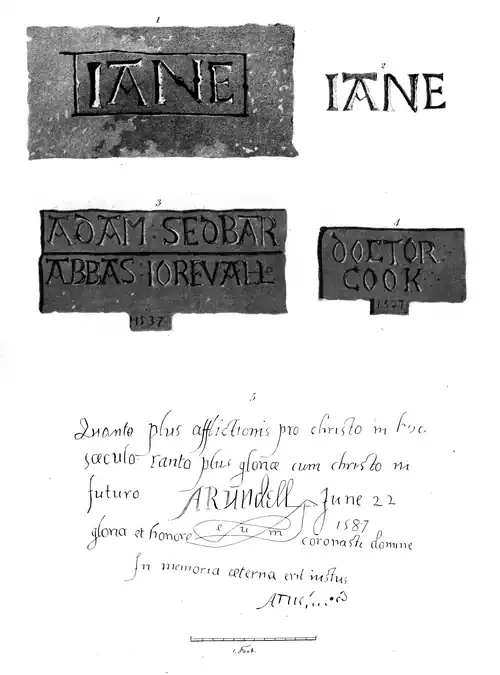 1
IANE
2
IANE
3
ADAM : SEDBAR
ABBAS : IOREVALL
1537
4
DOCTOR
COOK
5
Quanto plus afflictionis pro christo in hoc
sæculo Tanto plus gloriæ cum christo in
futuro ARUNDELL June 22
1587
gloria et honore e u m coronasti domine
In memoria æterna erit iustus
1. Foot.